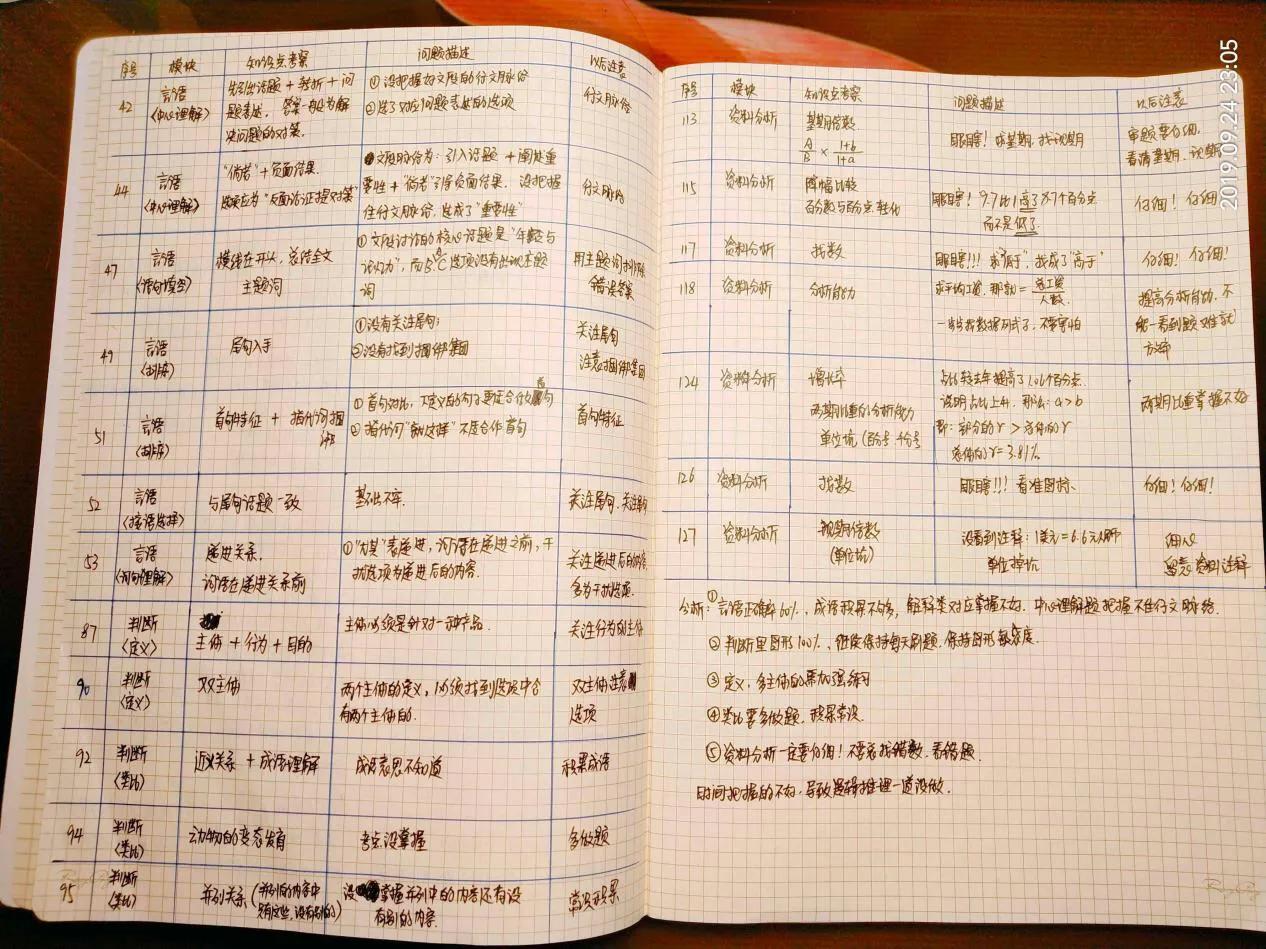 序号 模块 知识点考察 问题描述 以后注意
42 言语 先引出话题 + 转折 + 问 ① 没把握好文段的行文脉络 行文脉络
(中心理解) 题表述，答案一般为解 ② 选了对应问题表述的选项
决问题的对策。
44 言语 "倘若" + 负面结果. 文段脉络为：引入话题 + 阐述重 行文脉络
(中心理解) 选项应为"反面论证提对策" 要性 + "倘若"引导负面结果. 没把握
住行文脉络，选成了"重要性"
47 言语 横线在开头，总结全文 ① 文段讨论的核心话题是"年龄与 用主题词排除
(语句填空) 主题词 ，而B、C选项没有出现主题 错误答案
词
49 言语 尾句入手 ① 没有关注尾句； 关注尾句
(排序) ② 没有找到捆绑集团 注意捆绑集团
51 言语 首句特征 + 指代词捆 ① 首句对比，下定义的句子更适合做首句 首句特征
(排序) 绑 ② 指代词 "这样" 不适合作首句
52 言语 与尾句话题一致 基础不牢. 关注尾句、关注
(接语选择)
53 言语 递进关系. ① "尤其"表递进，词语在递进之前，干 关注递进后的内容
(词句理解) 词语在递进关系前 扰选项为递进后的内容. 多为干扰选项.
87 判断 主体 + 行为 + 目的 主体必须是针对一种产品. 关注行为的主体
(定义)
90 判断 双主体 两个主体的定义，必须找到选项中含 双主体注意
(定义) 有两个主体的. 选项
92 判断 近义关系 + 成语理解 成语意思不知道 积累成语
(类比)
94 判断 动物的变态发育 考点没掌握 多做题
(类比)
95 判断 并列关系 (并列的内容中 没掌握并列中的内容还有没 常识积累
(类比) 只有这些，没有别的) 有别的内容.
序号 模块 知识点考察 问题描述 以后注意
113 资料分析 基期倍数. 眼瞎！求基期，找现期 审题要仔细，
A/B × 1+b/1+a 看清基期、现期
115 资料分析 降幅比较 眼瞎！9.7比1高了8.7个百分点 仔细！仔细
百分数与百分点转化 而不是低了.
117 资料分析 找数 眼瞎!!! 求"低于"，找成了"高于" 仔细！仔细！
118 资料分析 分析能力 求平均工资，那就 = 总工资/人数. 提高分析能力，不
一步步找数据列式子，不要害怕 能一看到题难就
放弃
124 资料分析 增长率 占比较去年提高了1.06个百分点. 两期比重掌握不好
两期比重的分析能力 说明占比上升，那么：a > b
单位坑 (百分号、千分号 即：部分的r > 总体的r
总体的r = 3.81%.
126 资料分析 找数 眼瞎!!! 看准图标. 仔细！仔细！
127 资料分析 现期倍数 没看到注释：1美元=6.6元人民币 细心
(单位坑) 单位掉坑 留意资料注释
分析：① 言语正确率60%，成语积累不够多，解释类对应掌握不好. 中心理解题把握不住行文脉络.
② 判断里图形100%，继续保持每天刷题，保持图形敏感度.
③ 定义，多主体的要加强练习
④ 类比要多做题，积累常识.
⑤ 资料分析一定要仔细！不要总找错数，看错题.
时间把握的不好，导致逻辑推理一道没做.
2019.09.24 23:05